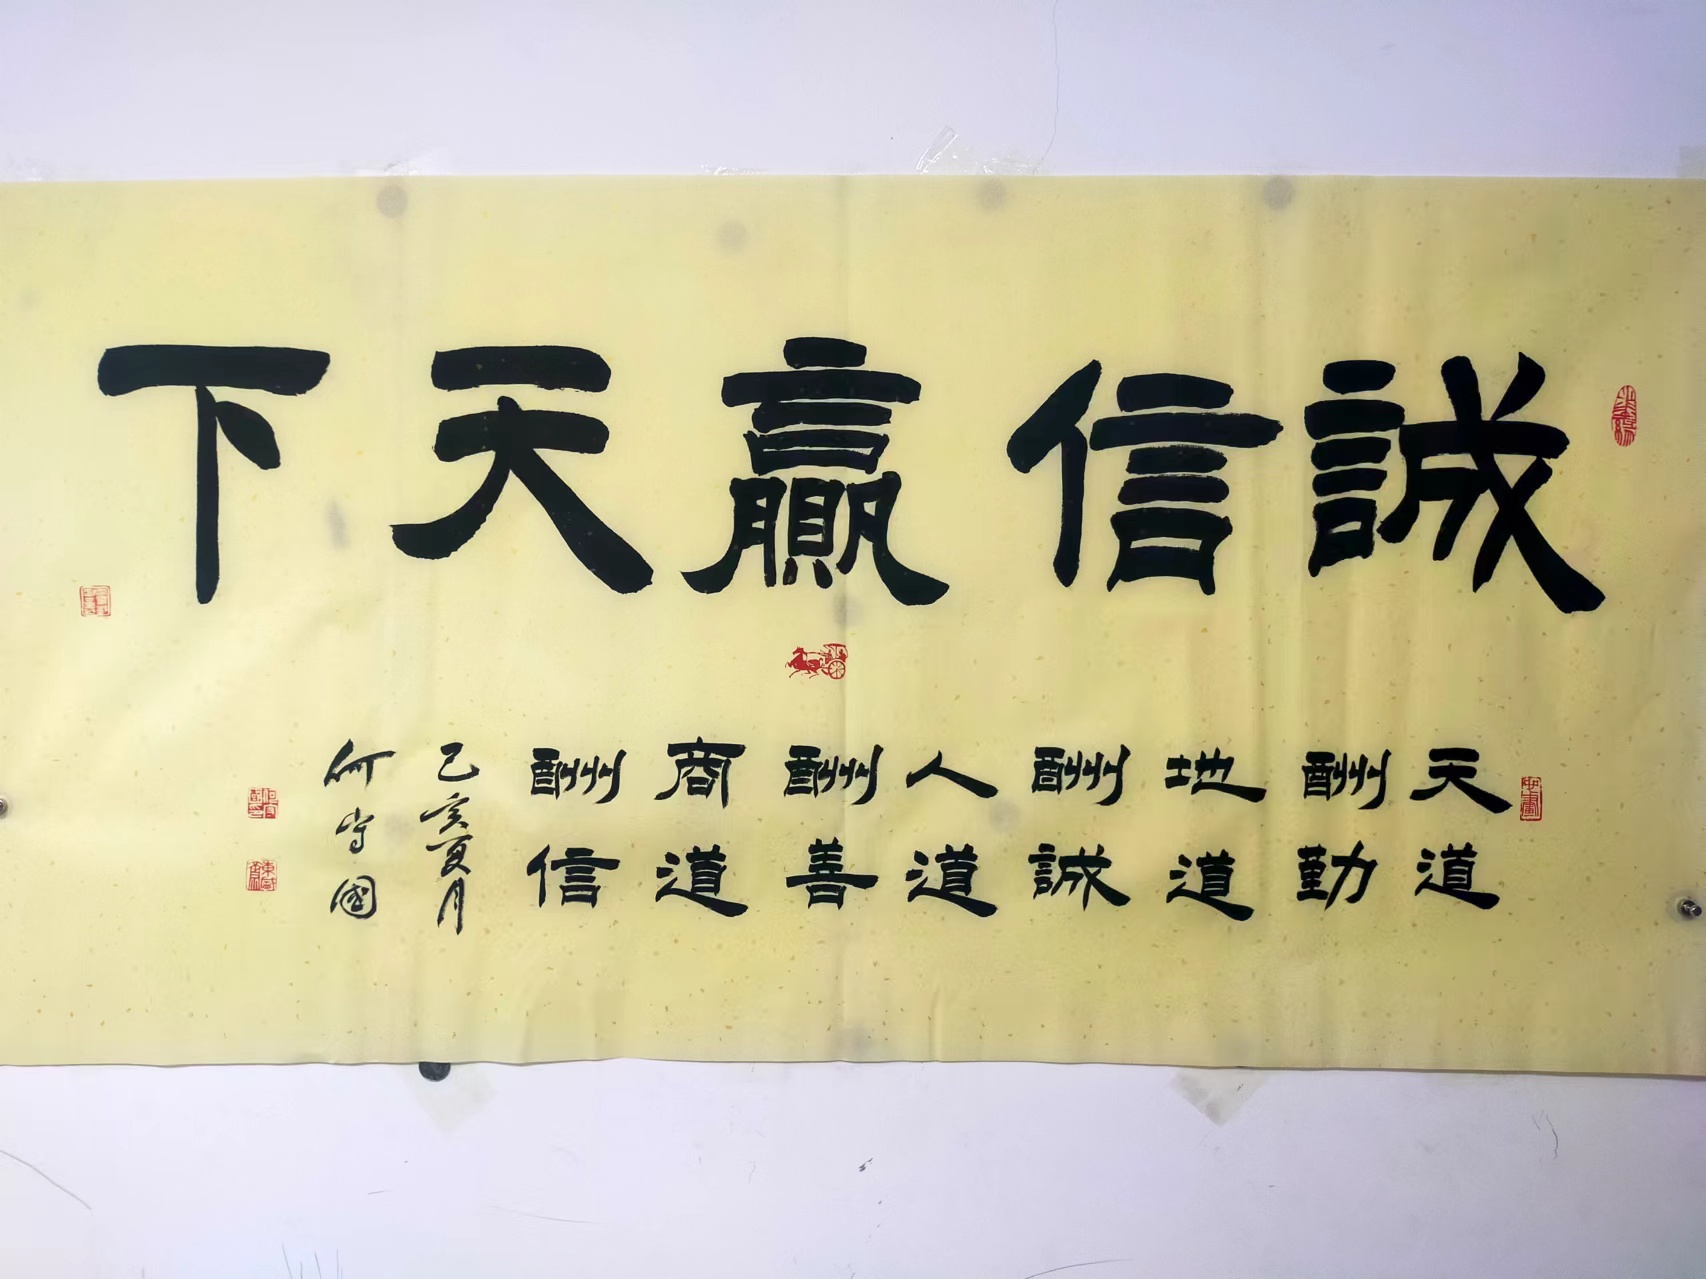 誠信贏天下
天道
酬勤
地道
酬誠
人道
酬善
商道
酬信
己亥夏月
何守國